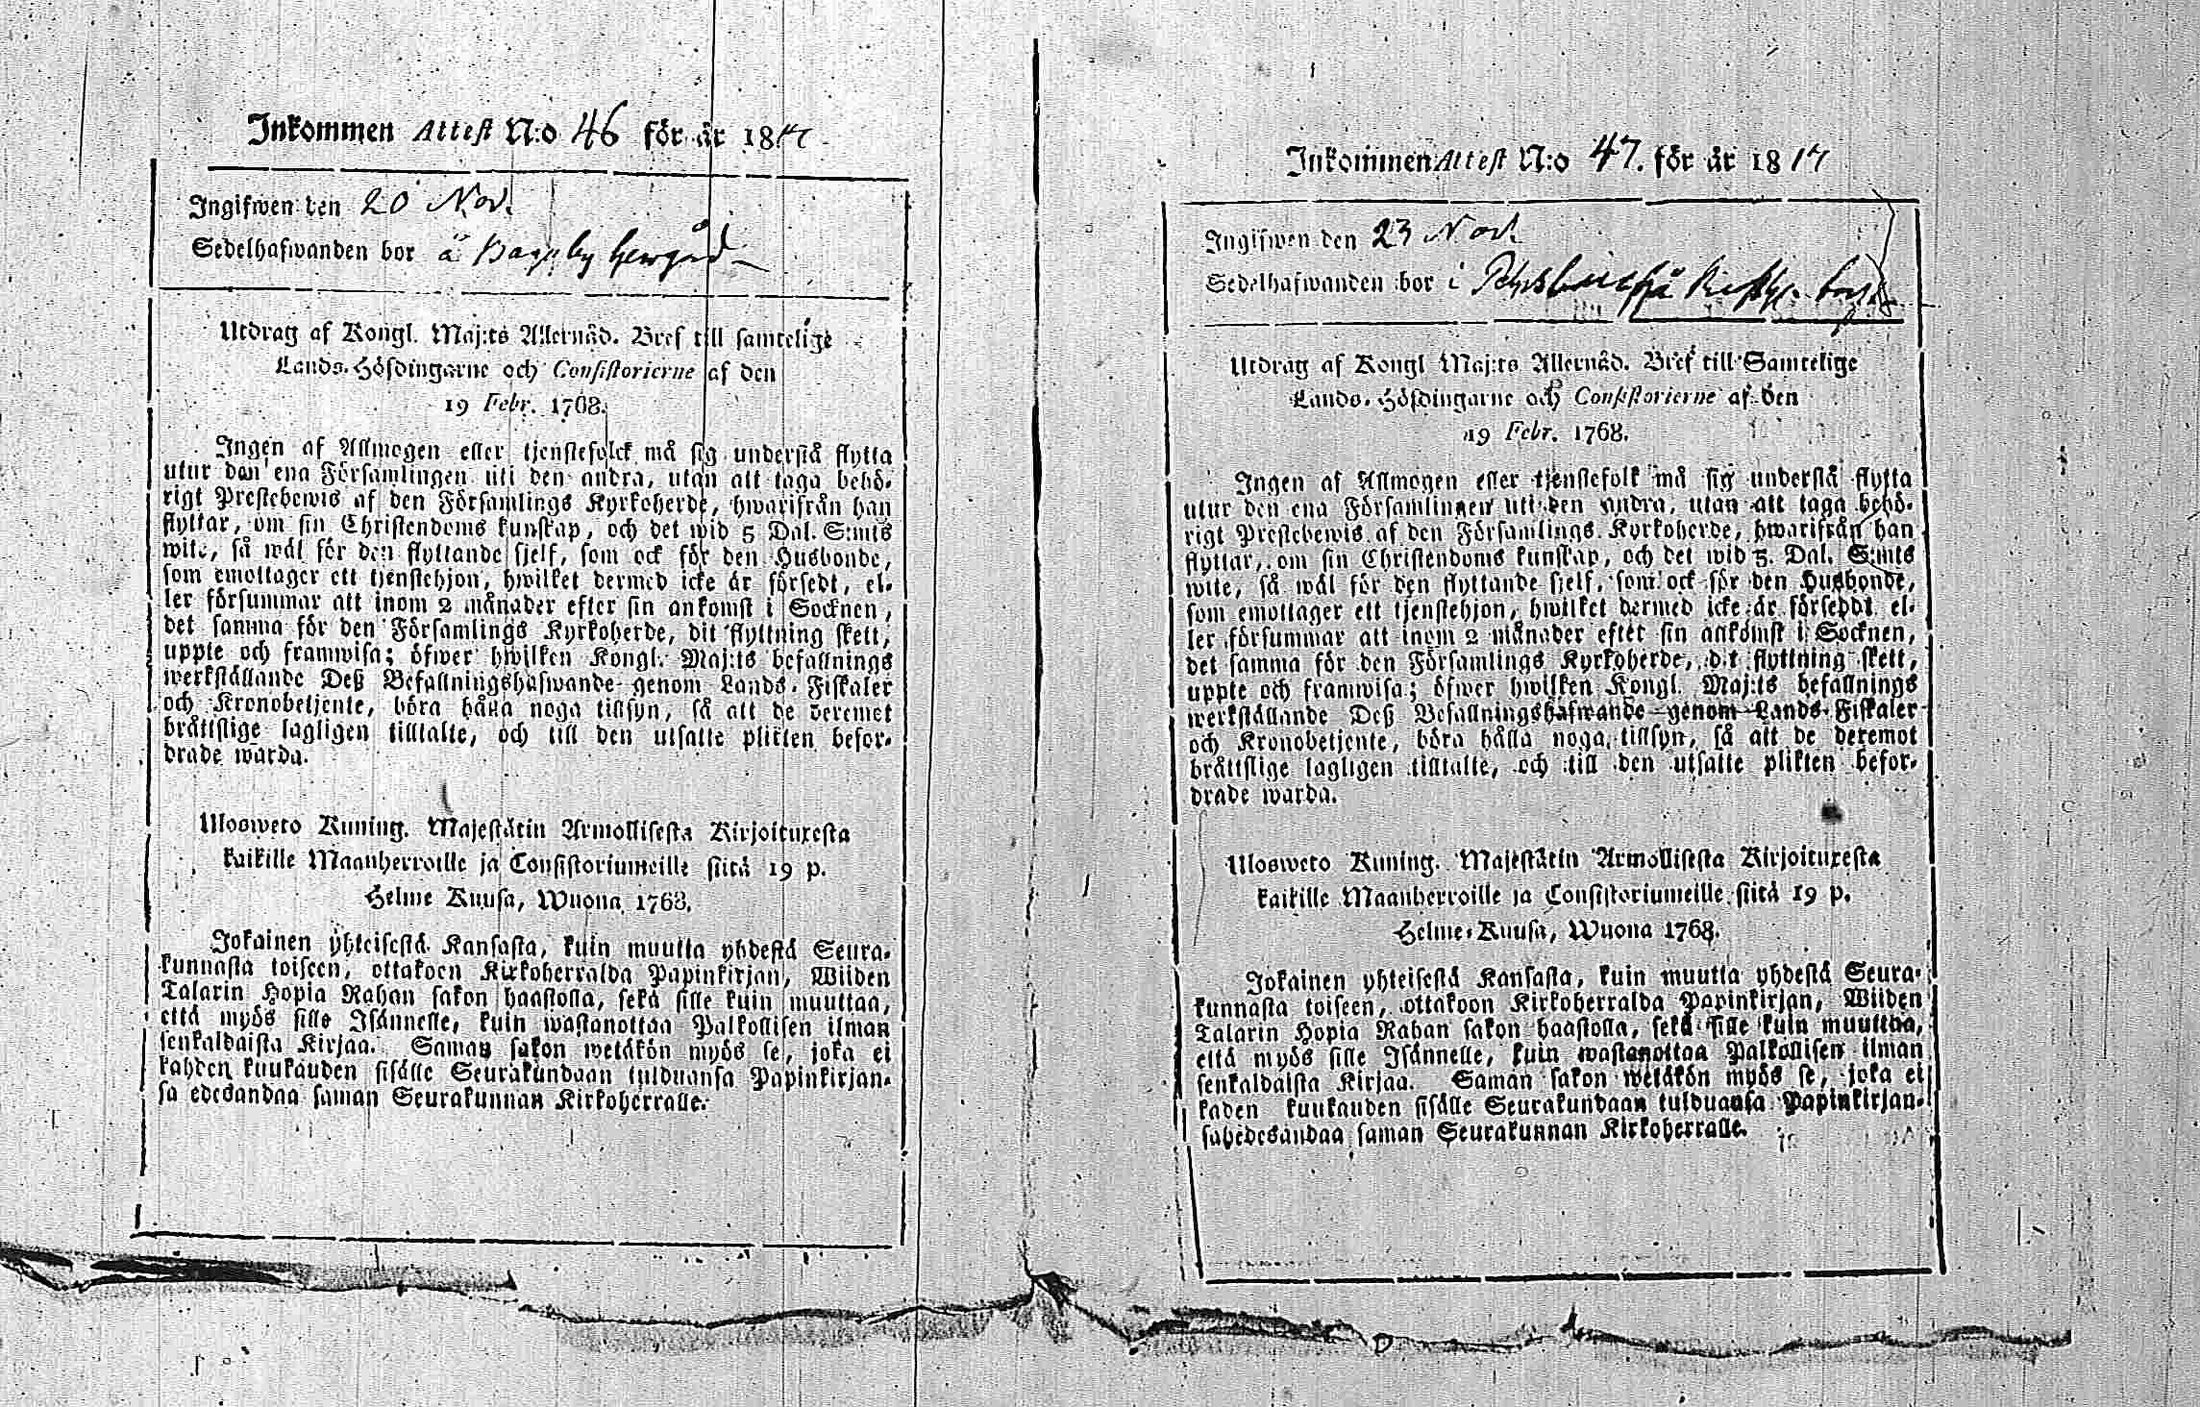 Inkommen Attest N:o 46 för år 1817
Ingifwen den 20 Nov.
Sedelhafwanden bor å
Utdrag af Kongl. Maj:ts Allernåd. Bref till samtelige
Lands-Höfdingarne och Consistorierne af den
19 Febr. 1768.
Ingen af Allmogen eller tjenstefolck må sig understå flytta
utur den ena Församlingen uti den andra, utan att taga behö-
rigt Prestebewis af den Församlings Kyrkoherde, hwarifrån han
flyttar, om sin Christendoms kunskap, och det wid 5 Dal. S:mts
wite, så wäl för den flyttande sjelf, som ock för den Husbonde,
som emottager ett tjenstehjon, hwilket dermed icke är försedt, el-
ler försummar att inom 2 månader efter sin ankomst i Socknen,
det samma för den Församlings Kyrkoherde, dit flyttning skett,
uppte och framwisa; öfwer hwilken Kongl. Maj:ts befallnings
werkställande Deß Befallningshafwande genom Lands-Fiskaler
och Kronobetjente, böra hålla noga tillsyn, så att de deremot
bråttslige lagligen tilltalte, och till den utsatte plikten befor-
drade warda.
Ulosweto Kuning. Majestätin Armollisesta Kirjoituxesta
kaikille Maanherroille ja Consistoriumeille siitä 19 p.
Helme Kuusa, Wuona 1768.
Jokainen yhteisestä Kansasta, kuin muutta yhdestä Seura-
kunnasta toiseen, ottakoon Kirkoherralda Papinkirjan, Wiiden
Talarin Hopia Rahan sakon haastolla, sekä sille kuin muuttaa,
että myös sille Isännelle, kuin wastanottaa Palkollisen ilman
senkaldaista Kirjaa. Saman sakon wetäkön myös se, joka ei
kahden kuukauden sisälle Seurakundaan tulduansa Papinkirjan-
sa edesandaa saman Seurakunnan Kirkoherralle.
Inkommen Attest N:o 47. för år 1817
Ingifwen den 23 Nov.
Sedelhafwanden bor i
Utdrag af Kongl Maj:ts Allernåd. Bref till Samtelige
Lands-Höfdingarne och Consistorierne af den
19 Febr. 1768.
Ingen af Allmogen eller tjenstefolk må sig understå flytta
utur den ena Församlingen uti den andra, utan att taga behö-
rigt Prestebewis af den Församlings Kyrkoherde, hwarifrån han
flyttar, om sin Christendoms kunskap, och det wid 5. Dal. S:mts
wite, så wäl för den flyttande sjelf, som ock för den Husbonde,
som emottager ett tjenstehjon, hwilket dermed icke är förseddt, el-
ler försummar att inom 2 månader efter sin ankomst i Socknen,
det samma för den Församlings Kyrkoherde, dit flyttning skett,
uppte och framwisa; öfwer hwilken Kongl. Maj:ts befallnings
werkställande Deß Befallningshafwande genom Lands-Fiskaler
och Kronobetjente, böra hålla noga tillsyn, så att de deremot
bråttslige lagligen tilltalte, och till den utsatte plikten befor-
drade warda.
Ulosweto Kuning. Majestätin Armollisesta Kirjoituxesta
kaikille Maanherroille ja Consistoriumeille siitä 19 p.
Helme-Kuusa, Wuona 1768.
Jokainen yhteisestä Kansasta, kuin muutta yhdestä Seura-
kunnasta toiseen, ottakoon Kirkoherralda Papinkirjan, Wiiden
Talarin Hopia Rahan sakon haastolla, sekä sille kuin muuttaa,
että myös sille Isännelle, kuin wastanottaa Palkollisen ilman
senkaldaista Kirjaa. Saman sakon wetäkön myös se, joka ei
kaden kuukauden sisälle Seurakundaan tulduansa Papinkirjan-
sahedesandaa saman Seurakunnan Kirkoherralle.